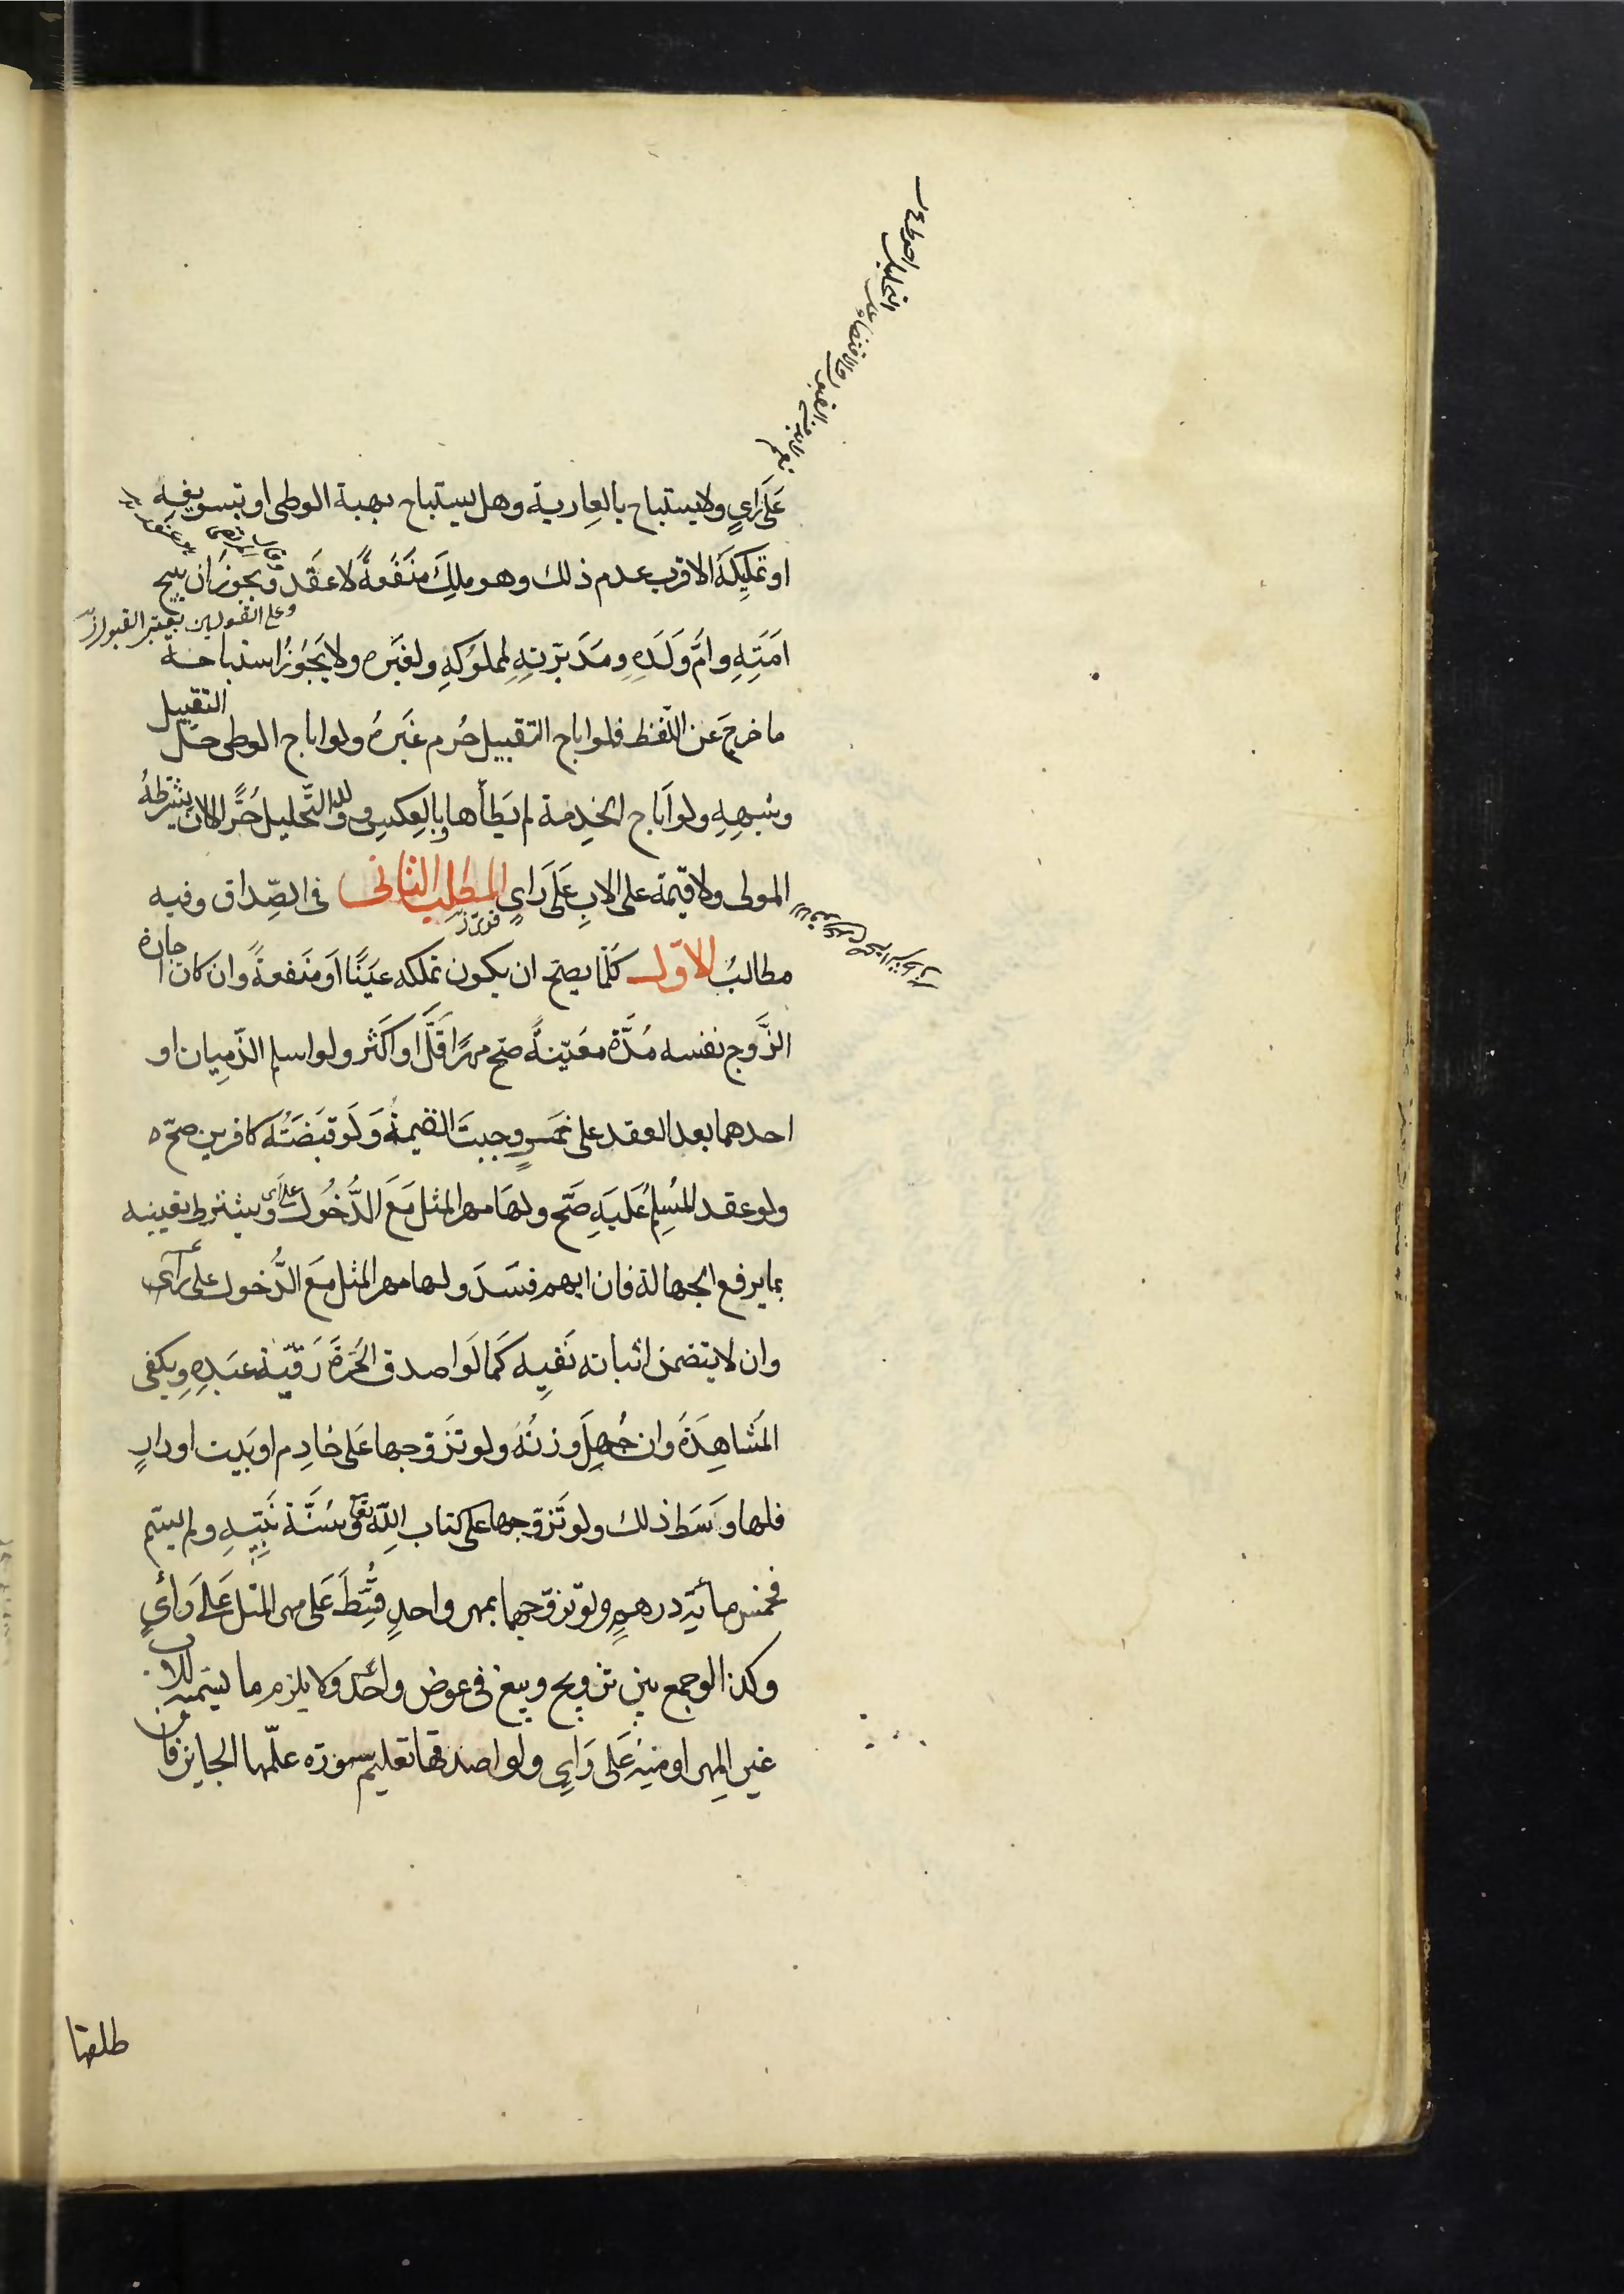 عَلَى رَأيٍ ولا يستباح بالعارية وهل يستباح بهبة الوطى او بتسويغه
او تمليكه الاقرب عدم ذلك وهو مِلك منفعةً لا عقد ويجوز ان يبيح
وعلى القولين يعتبر القبول
امَتِهِ وامّ وَلَدِهِ ومدبّرتهِ لمملوكهِ ولغيره ولا يجوز استباحة
ما خرج عن اللّفظ فلو اباح التقبيل حُرم غيرهُ ولو اباح الوطى حلّ التقبيل
وشبههِ ولو اباح الخدمة لم يَطَأها وبالعكس وولد التّحليل حُرّ الا ان يشترطهُ
المولى ولا قيمة على الابِ عَلَى رَايٍ المطلب الثانى فى الصّداق وفيه
مطالبُ الاوّل كلّما يصح ان يكون تملكه عيناً او منفعةً وان كان اجارة
الزَّوج نفسه مُدَّة معَيّنةً صح مهرًا قلَّ او اكثر ولو اسلم الذّميان او
احدهما بعد العقد على خمرٍ وجبت القيمةُ ولو قبضَتْهُ كافرين صحّ ه
ولو عقد المُسلِمُ عَلَيهِ صَحَّ ولها مهر المثل مَعَ الدُّخُول على راى ويشترط تعيينه
بما يرفع الجهالة فان ابهم فسَدَ ولها مهر المثل مع الدُّخول على رأى
وان لا يتضمن اثباته نَفيه كما لَو اصدق الحُرَّة رَقبة عبدِهِ ويكفى
المُشاهدَةُ وان جُهِلَ وزنُهُ ولو تزَوّجها عَلى خادِم او بَيت او دارٍ
فلها وَسَط ذلك ولو تَزوّجها على كتاب اللّهِ تعَ وسُنَّة نَبِيّهِ ولم يسّم
فخمس مأيَة درهمٍ ولو تزوّجهما بمهر واحدٍ قُسِّطَ عَلى مهر المثل عَلَى رَأيٍ
وكذا لو جمع بين تزويج وبيع فى عوض واحد وَلا يلزم ما يسّميه للاب
غير المهر او منهُ عَلى رَايٍ ولو اصدقها تعليم سورة علّمها الجايز فان
طلقها